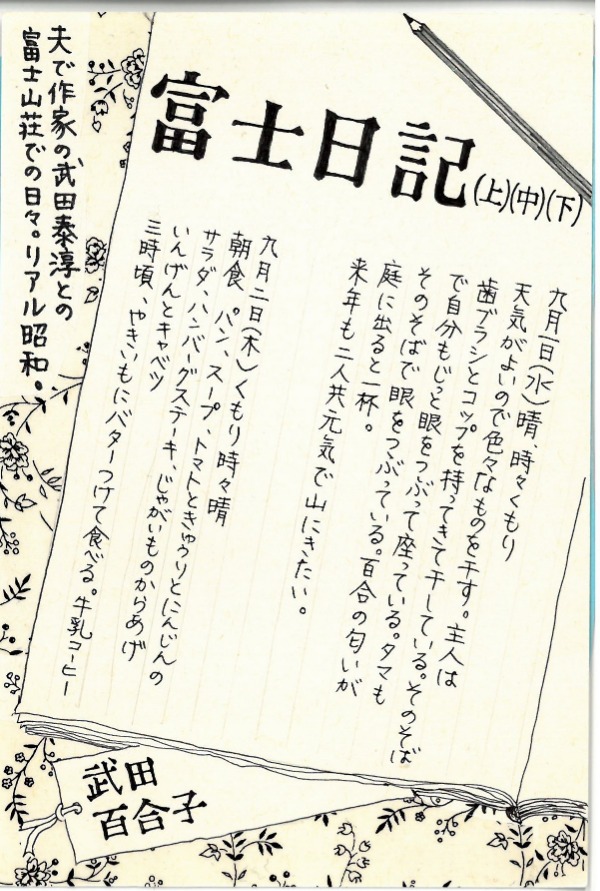 富士日記(上)(中)(下)
九月一日(水)晴、時々くもり
天気がよいので色々なものを干す。主人は
歯ブラシとコップを持ってきて干している。そのそば
で自分もじっと眼をつぶって座っている。タマも
そのそばで眼をつぶっている。百合の匂いが
庭に出ると一杯。
来年も二人共元気で山にきたい。
九月二日(木)くもり時々晴
朝食 パン、スープ、トマトときゅうりとにんじんの
サラダ、ハンバーグステーキ、じゃがいものからあげ
いんげんとキャベツ
三時頃、やきいもにバターつけて食べる。牛乳コーヒー
夫で作家の武田泰淳との
富士山荘での日々。リアル昭和。
武田
百合子